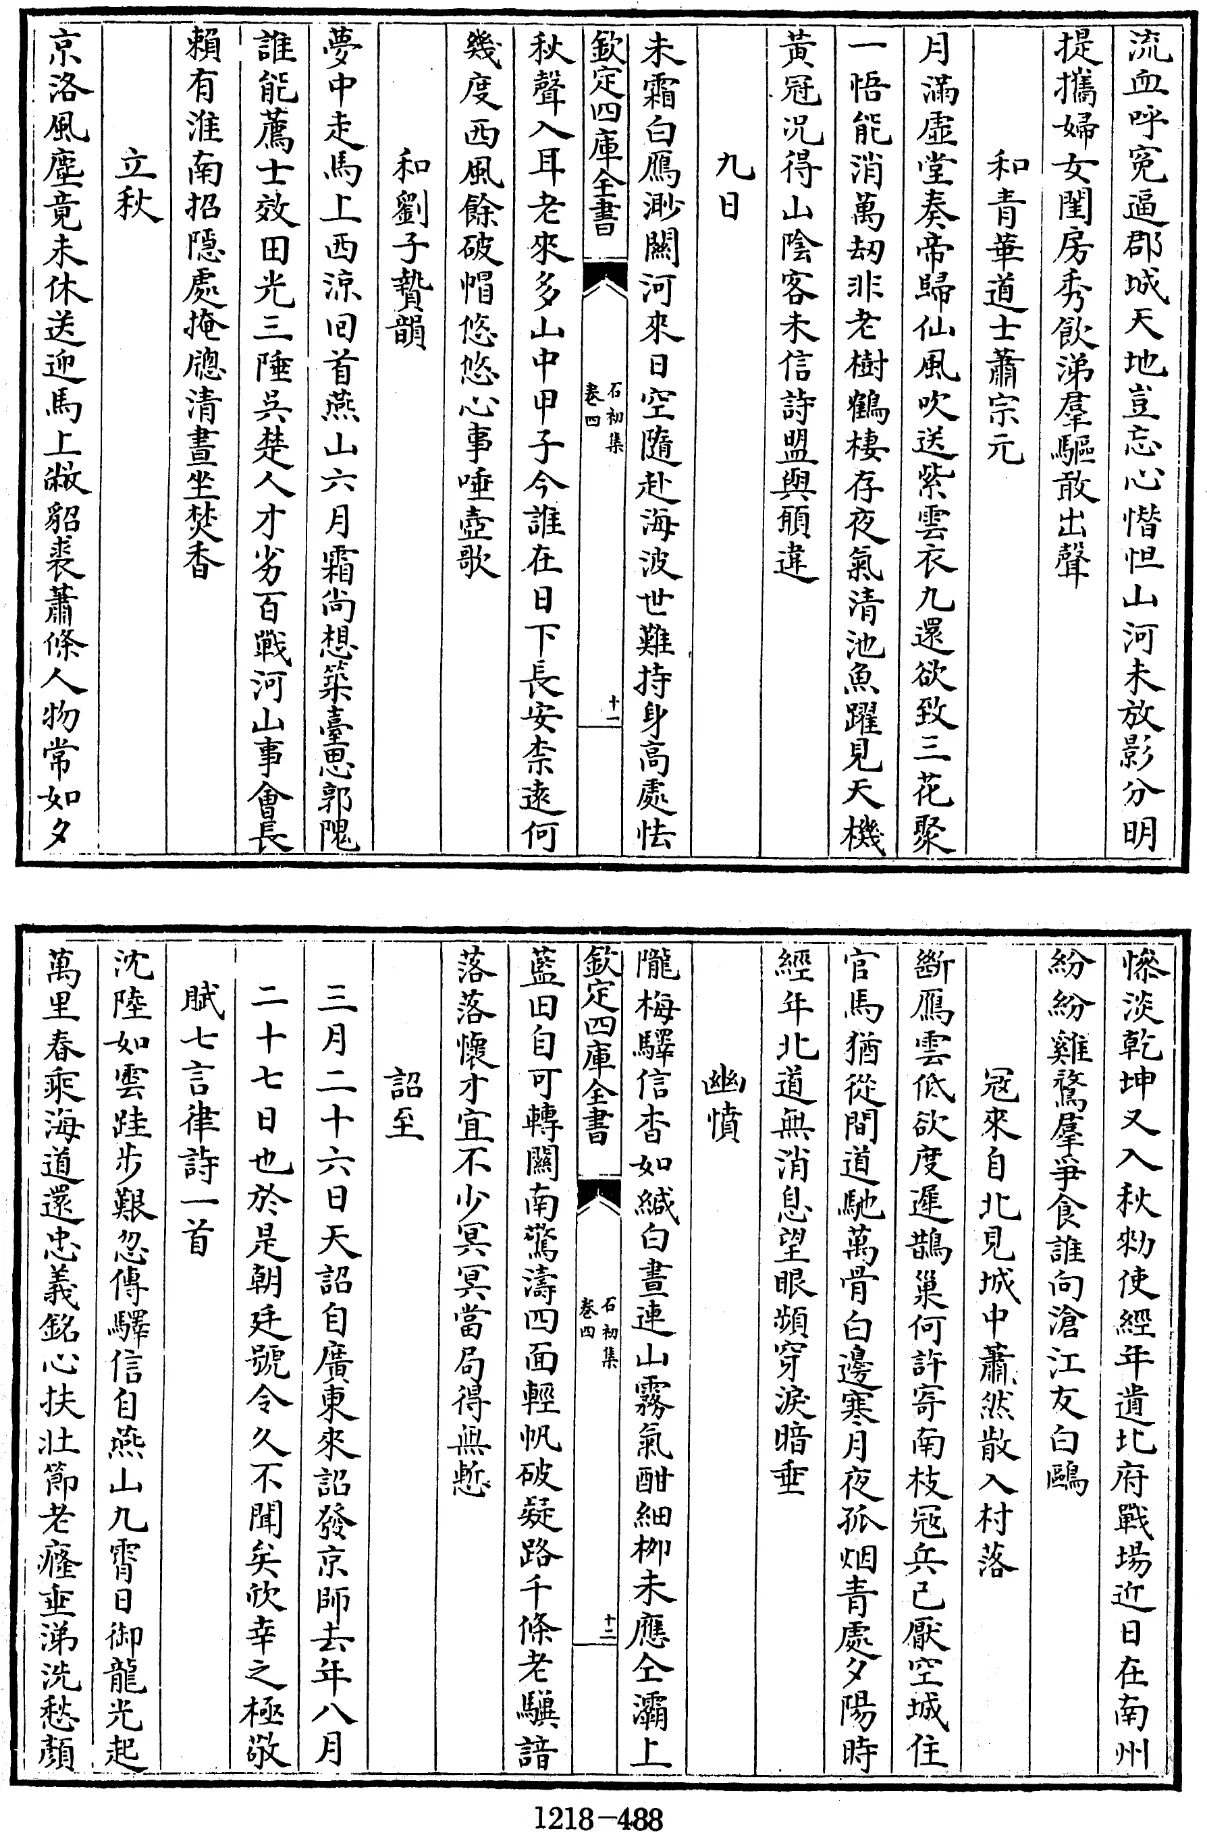 流血呼寃逼郡城天地豈忘心慘怛山河未放影分明
提攜婦女閨房秀飲涕羣驅敢出聲
和青華道士蕭宗元
月滿虛堂奏帝歸仙風吹送紫雲衣九還欲致三花聚
一悟能消萬刼非老樹鶴棲存夜氣清池魚躍見天機
黃冠况得山陰客未信詩盟與願違
九日
未霜白鴈渺關河來日空隨赴海波世難持身高處怯
欽定四庫全書
石初集
卷四
十一
秋聲入耳老來多山中甲子今誰在日下長安柰遠何
幾度西風餘破帽悠悠心事唾壺歌
和劉子贄韻
夢中走馬上西涼回首燕山六月霜尚想築臺思郭隗
誰能薦士效田光三陲吳楚人才劣百戰河山事會長
賴有淮南招隱處掩牕清晝坐焚香
立秋
京洛風塵竟未休送迎馬上敝貂裘蕭條人物常如夕
慘淡乾坤又入秋勑使經年遺北府戰場近日在南州
紛紛雞鶩羣爭食誰向滄江友白鷗
冦來自北見城中蕭然散入村落
斷鴈雲低欲度遲鵲巢何許寄南枝冦兵已厭空城住
官馬猶從間道馳萬骨白邊寒月夜孤烟青處夕陽時
經年北道無消息望眼頻穿淚暗垂
幽憤
隴梅驛信杳如緘白晝連山霧氣酣細柳未應仝灞上
欽定四庫全書
石初集
卷四
十二
藍田自可轉關南驚濤四面輕帆破疑路千條老驥諳
落落懷才宜不少冥冥當局得無慙
詔至
三月二十六日天詔自廣東來詔發京師去年八月
二十七日也於是朝廷號令久不聞矣欣幸之極敬
賦七言律詩一首
沈陸如雲跬步艱忽傳驛信自燕山九霄日御龍光起
萬里春乘海道還忠義銘心扶壯節老癃垂涕洗愁顏
1218-488